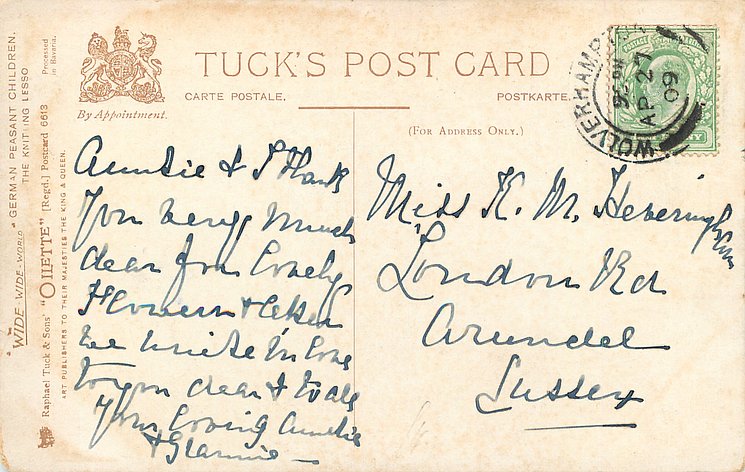 TUCK'S POST CARD
CARTE POSTALE.
POSTKARTE.
By Appointment.
(FOR ADDRESS ONLY.)
WOLVERHAMP
AP 27
09
"WIDE-WIDE-WORLD" "GERMAN PEASANT CHILDREN.
THE KNITTING LESSO
Processed
in Bavaria.
Raphael Tuck & Sons' "OILETTE" [Regd.] Postcard 6613
ART PUBLISHERS TO THEIR MAJESTIES THE KING & QUEEN.
Auntie & I Thank
You very much
dear for lovely
Flowers &
we unite in love
to you dear & to all
Your loving Auntie
&
Miss K. M. Heveringham
London Rd
Arundel
Sussex